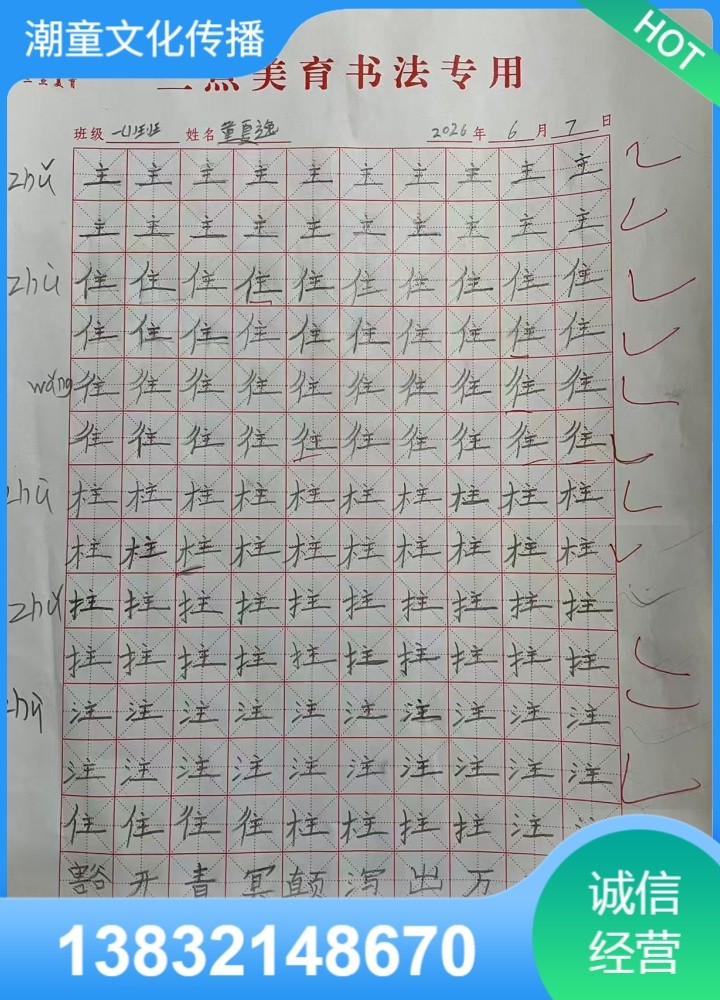 潮童文化传播
HOT
美育书法专用
班级 姓名 2026年6月7日
zhǔ 主主主主主主主主主主
主主主主主主主主主主
zhù 住住住住住住住住住住
住住住住住住住住住住
wǎng 往往往往往往往往往往
往往往往往往往往往往
zhù 柱柱柱柱柱柱柱柱柱柱
柱柱柱柱柱柱柱柱柱柱
zhǔ 拄拄拄拄拄拄拄拄拄拄
拄拄拄拄拄拄拄拄拄拄
zhù 注注注注注注注注注注
注注注注注注注注注注
住住往往柱柱拄拄注注
豁开青冥颠泻出万
诚信
经营
13832148670